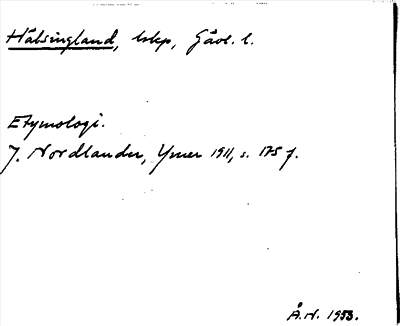 Hälsingland, lskp, Gävl. l.
Etymologi.
J. Nordlander, Ymer 1911, s. 175 f.
Å.H. 1953.